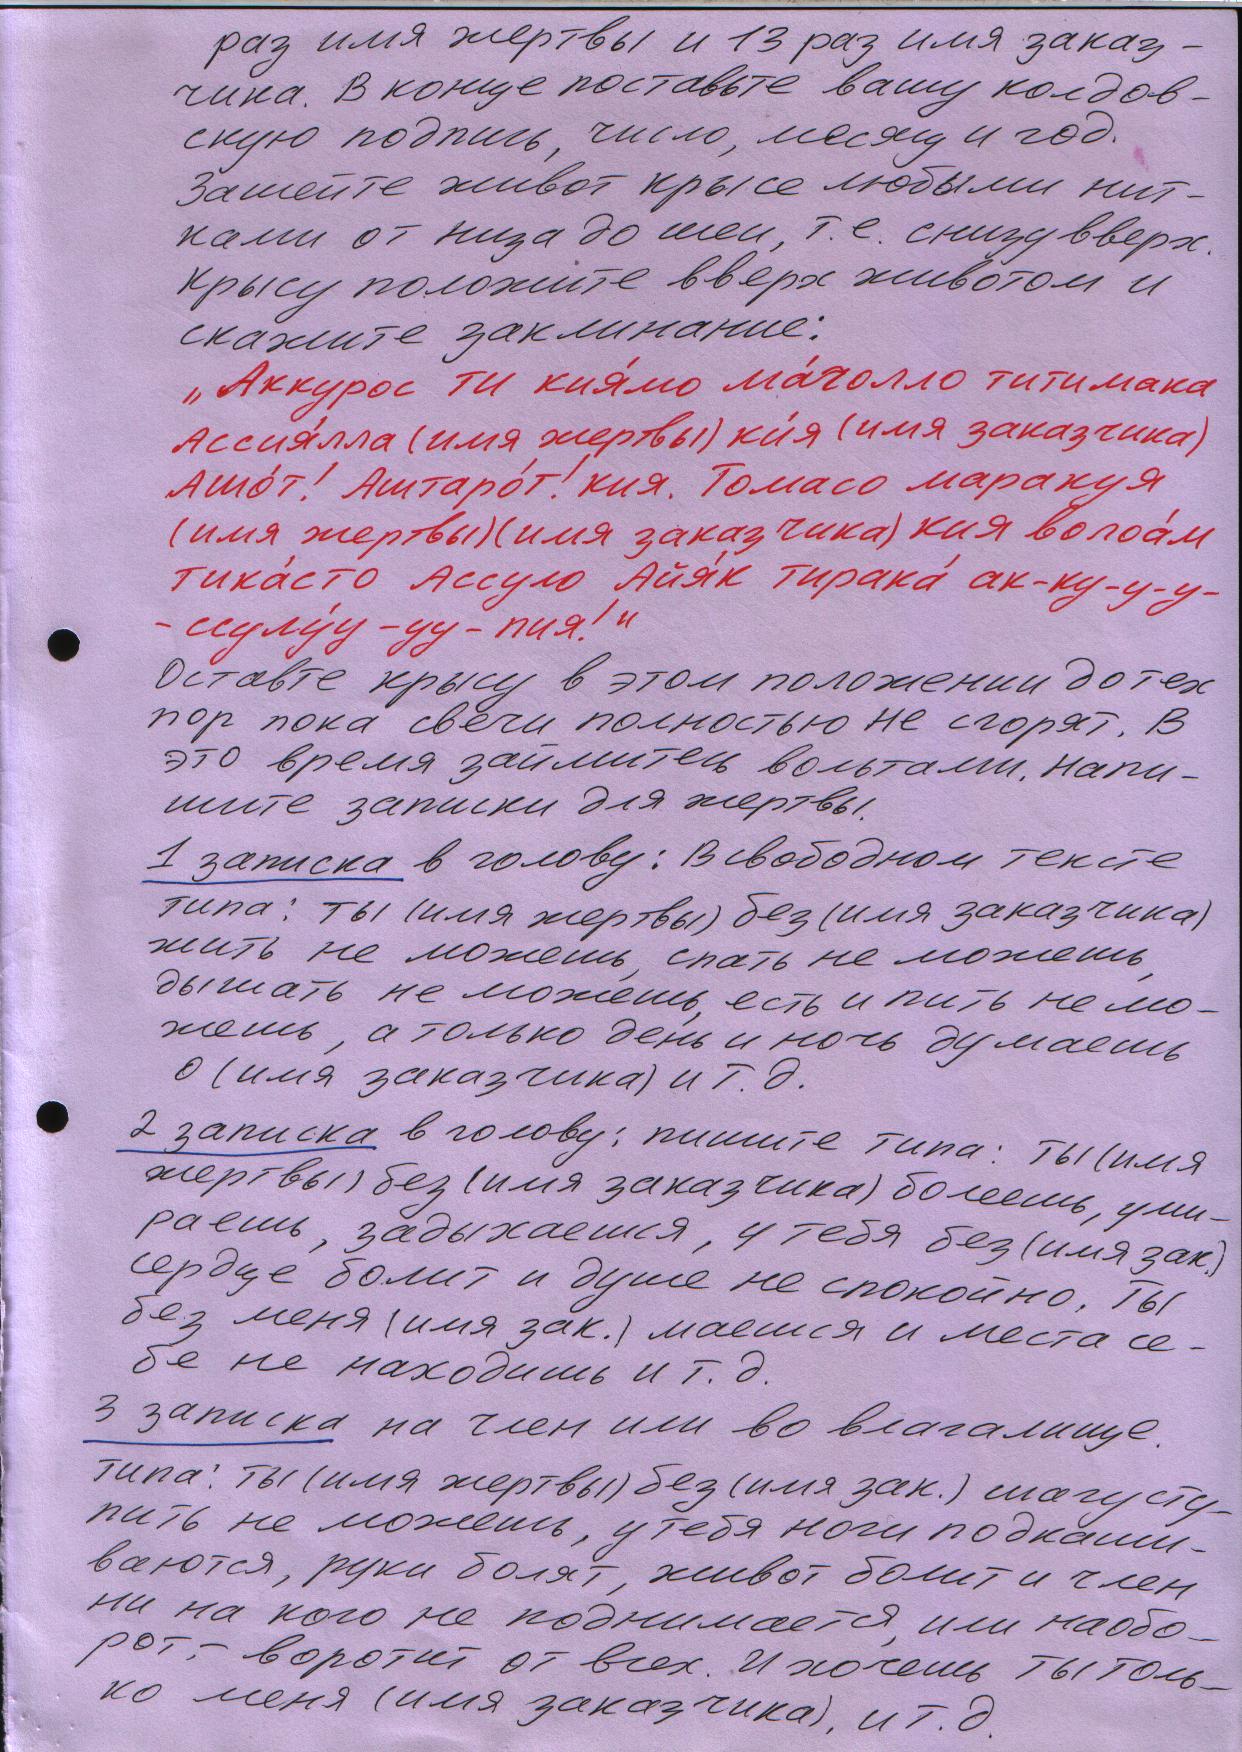 раз имя жертвы и 13 раз имя заказ-
чика. В конце поставьте вашу колдов-
скую подпись, число, месяц и год.
Зашейте живот крысе любыми нит-
ками от низа до шеи, т.е. снизу вверх.
Крысу положите вверх животом и
скажите заклинание:
„Аккурос ти кия́мо ма́чолло титимака
Ассия́лла (имя жертвы) ки́я (имя заказчика)
Ашо́т! Аштаро́т! кия. Томасо маракуя
(имя жертвы)(имя заказчика) кия волоа́м
тика́сто Ассуло Айя́к тирака́ ак-ку-у-у-
-ссулу́у-уу-пия!"
Оставте крысу в этом положении до тех
пор пока свечи полностью не сгорят. В
это время займитесь вольтами. Напи-
шите записки для жертвы.
1 записка в голову: В свободном тексте
типа: ты (имя жертвы) без (имя заказчика)
жить не можешь, спать не можешь,
дышать не можешь, есть и пить не мо-
жешь, а только день и ночь думаешь
о (имя заказчика) и т.д.
2 записка в голову: пишите типа: ты (имя
жертвы) без (имя заказчика) болеешь, уми-
раешь, задыхаешся, у тебя без (имя зак.)
сердце болит и душе не спокойно. Ты
без меня (имя зак.) маешся и места се-
бе не находишь и т.д.
3 записка на член или во влагалище.
типа: ты (имя жертвы) без (имя зак.) шагу сту-
пить не можешь, у тебя ноги подкаши-
ваются, руки болят, живот болит и член
ни на кого не поднимается, или наобо-
рот,- воротит от всех. И хочешь ты толь-
ко меня (имя заказчика), и т.д.